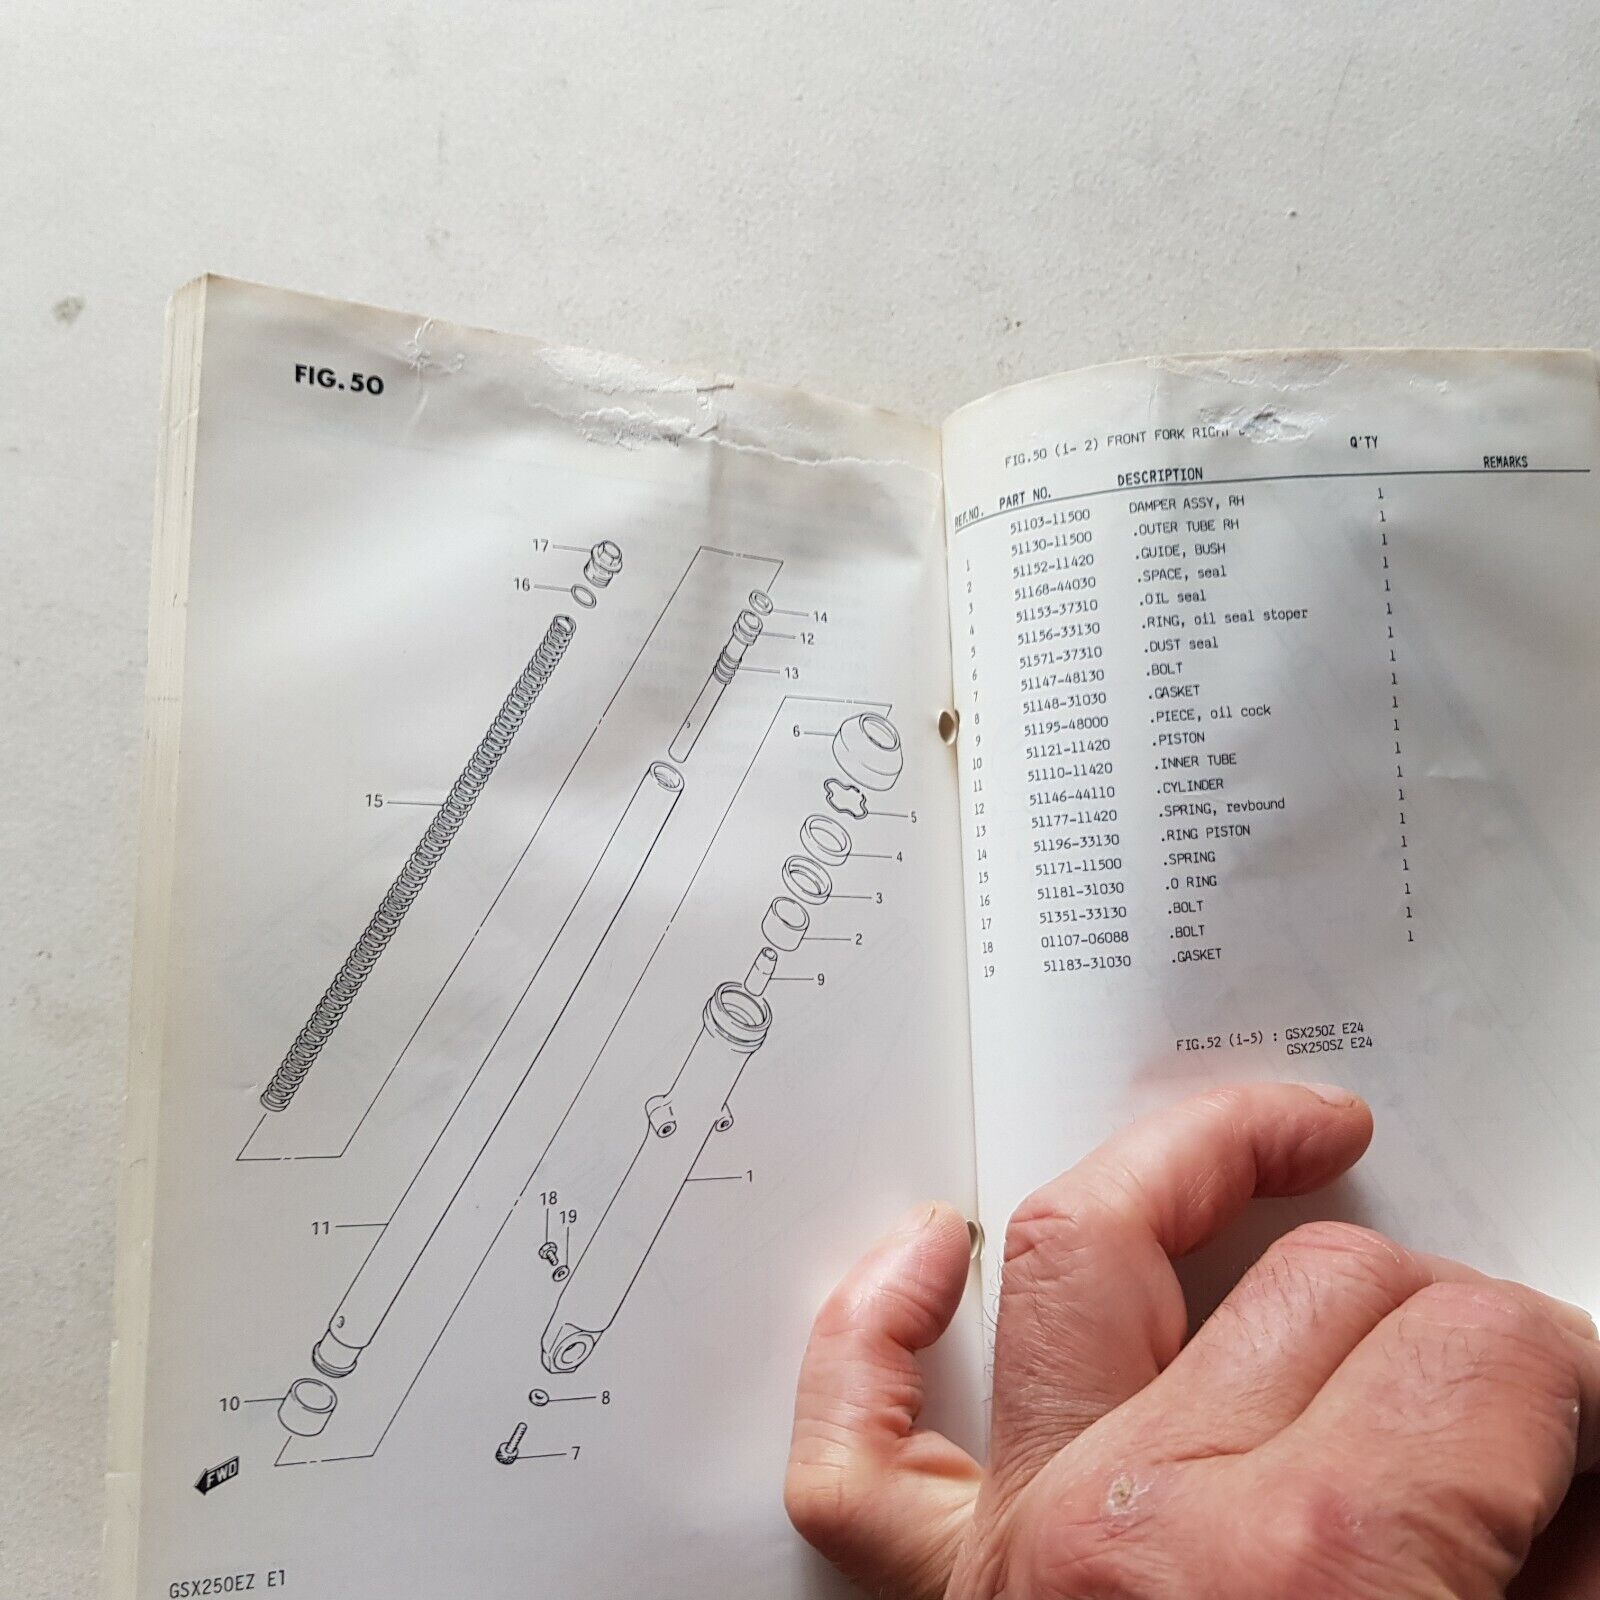 FIG.50
17
16
14
12
13
6
15
5
4
3
2
9
1
18
19
11
10
8
7
FWD
GSX250EZ E1
FIG.50 (i- 2) FRONT FORK RIGHT
REF.NO. PART NO. DESCRIPTION Q'TY REMARKS
51103-11500 DAMPER ASSY, RH 1
1 51130-11500 .OUTER TUBE RH 1
2 51152-11420 .GUIDE, BUSH 1
3 51168-44030 .SPACE, seal 1
4 51153-37310 .OIL seal 1
5 51156-33130 .RING, oil seal stoper 1
6 51571-37310 .DUST seal 1
7 51147-48130 .BOLT 1
8 51148-31030 .GASKET 1
9 51195-48000 .PIECE, oil cock 1
10 51121-11420 .PISTON 1
11 51110-11420 .INNER TUBE 1
12 51146-44110 .CYLINDER 1
13 51177-11420 .SPRING, revbound 1
14 51196-33130 .RING PISTON 1
15 51171-11500 .SPRING 1
16 51181-31030 .O RING 1
17 51351-33130 .BOLT 1
18 01107-06088 .BOLT 1
19 51183-31030 .GASKET 1
FIG.52 (i-5) : GSX250Z E24
GSX250SZ E24